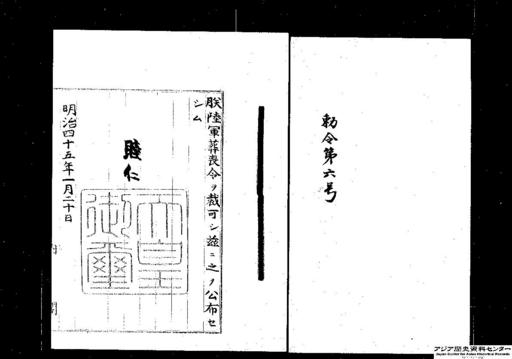 勅令第六号
朕陸軍葬喪令ヲ裁可シ茲ニ之ヲ公布セ
シム
睦仁
天皇御璽
明治四十五年一月二十日
内閣
アジア歴史資料センター
Japan Center for Asian Historical Records